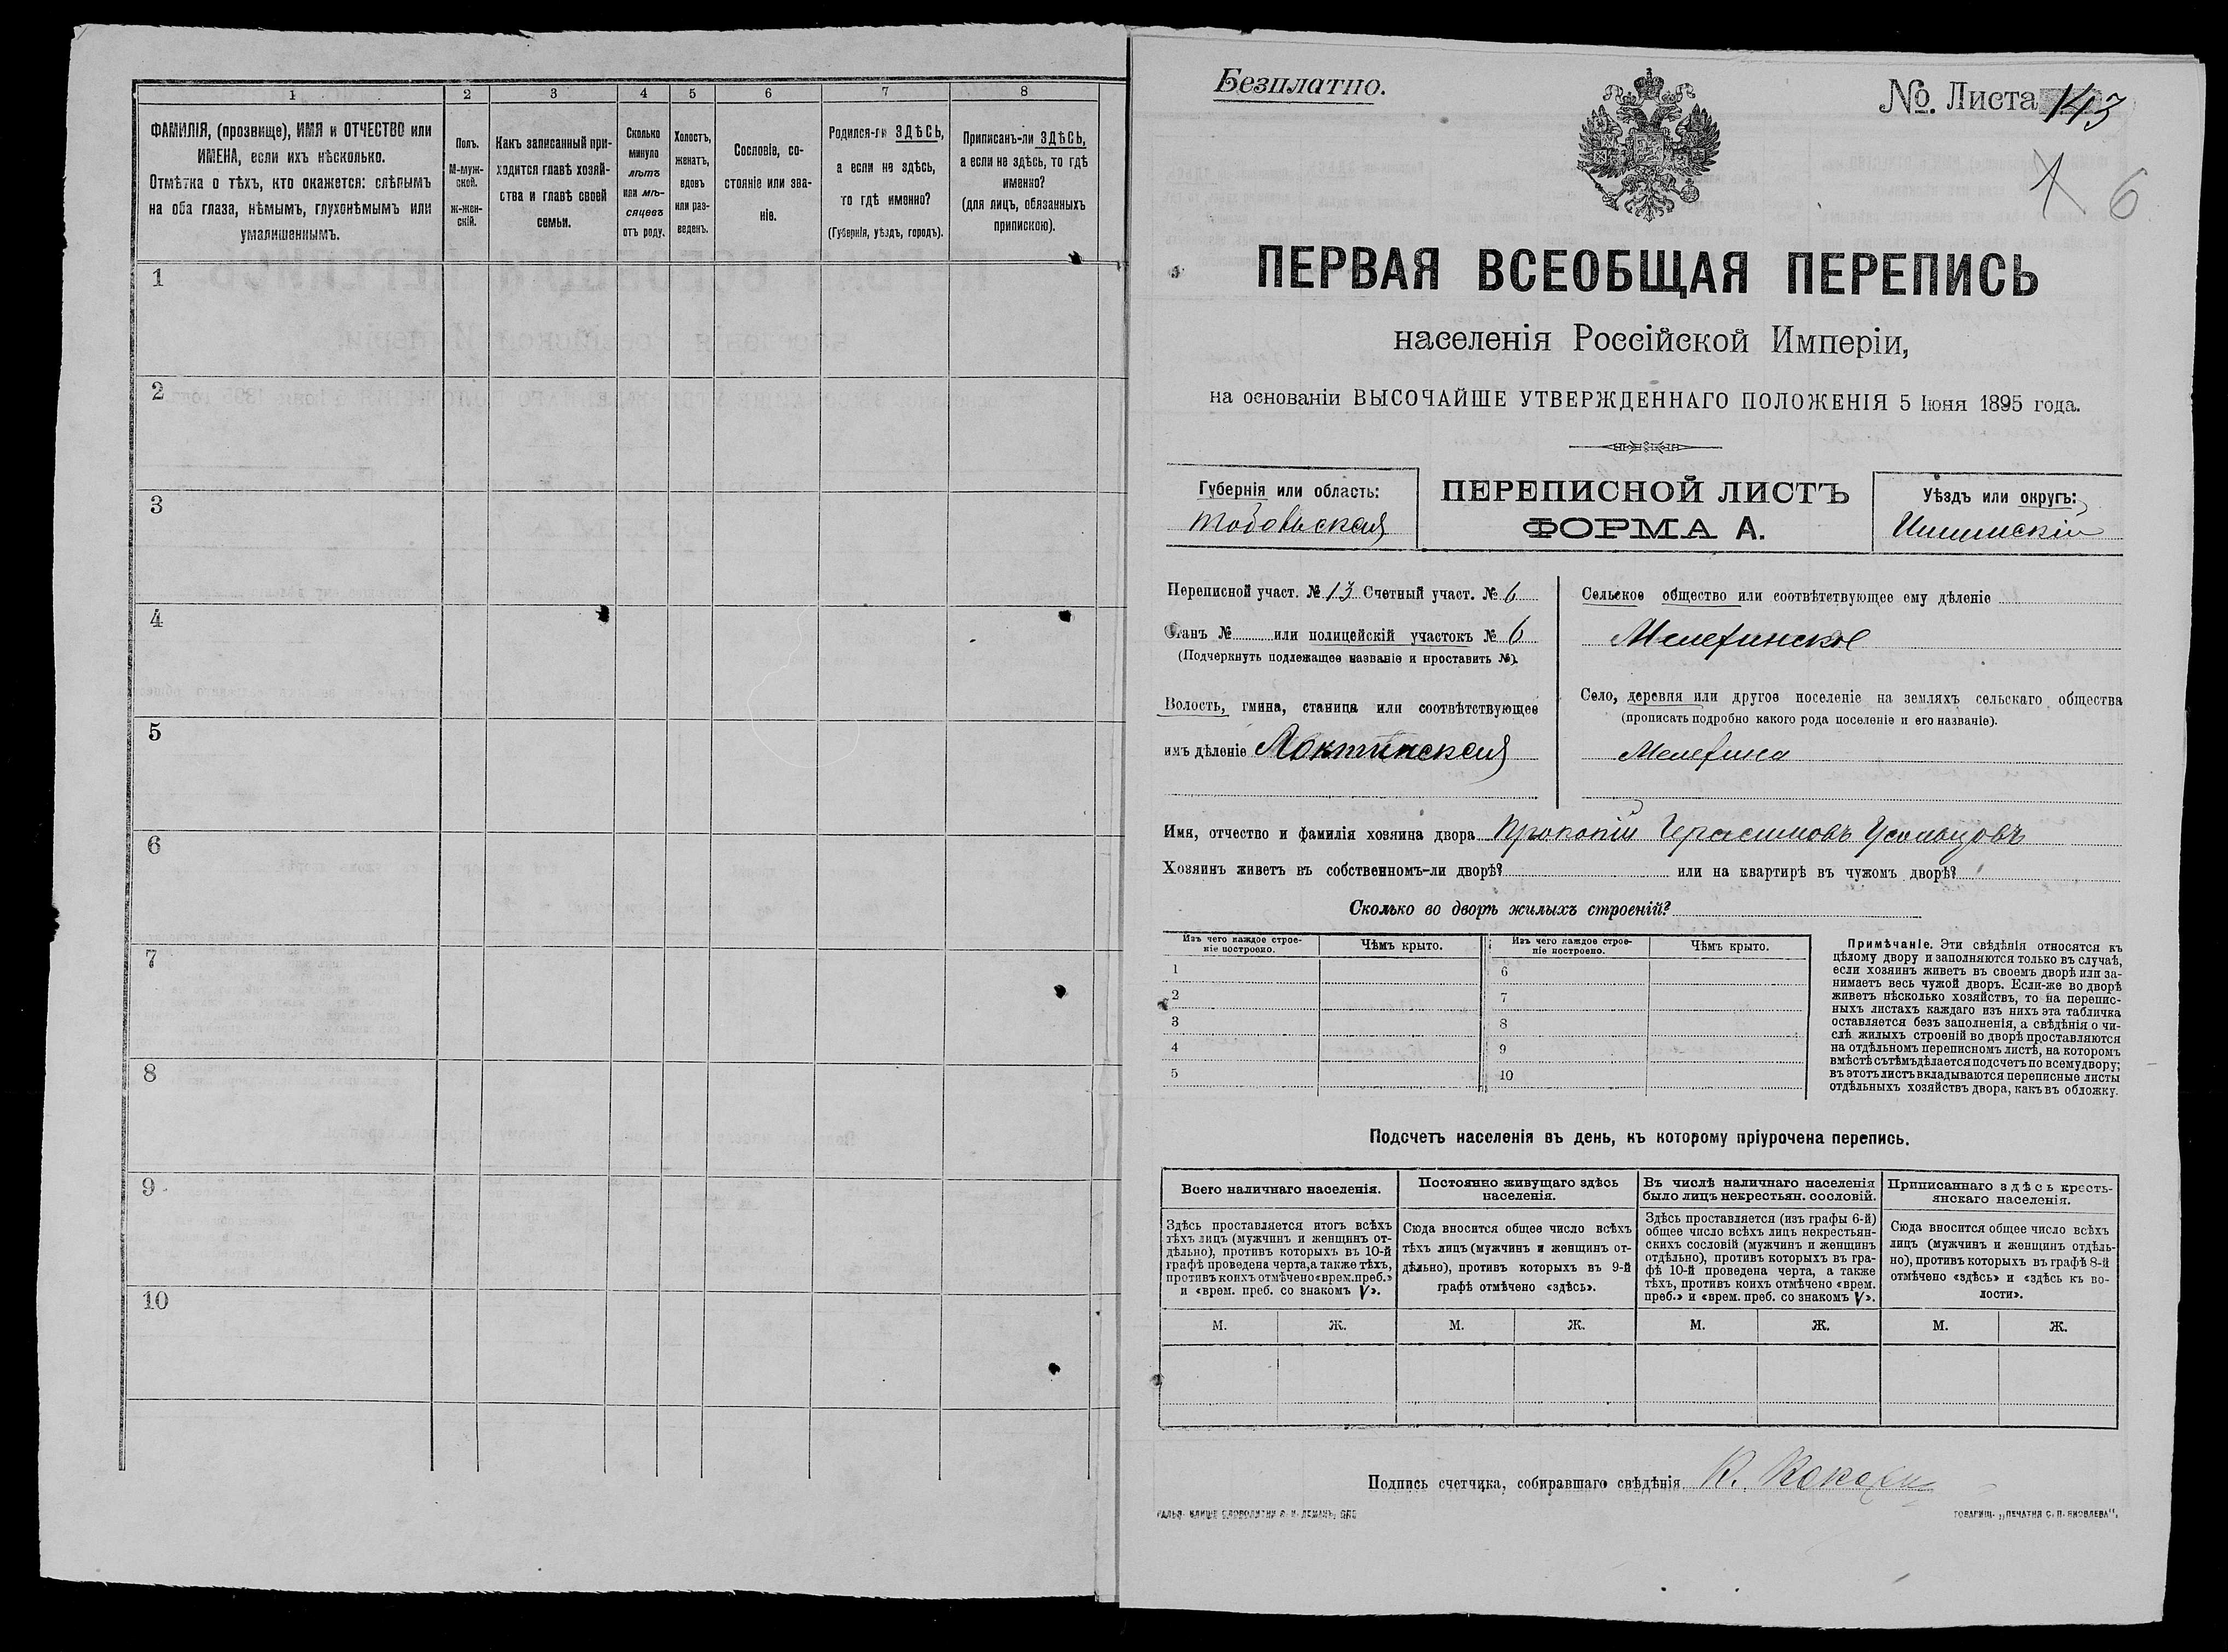 1
2
3
4
5
6
7
8
ФАМИЛІЯ, (прозвище), ИМЯ и ОТЧЕСТВО или
ИМЕНА, если ихъ нѣсколько.
Отмѣтка о тѣхъ, кто окажется: слѣпымъ
на оба глаза, нѣмымъ, глухонѣмымъ или
умалишеннымъ.
Полъ.
М-муж-
ской.
ж-жен-
скій.
Какъ записанный при-
ходится главѣ хозяй-
ства и главѣ своей
семьи.
Сколько
минуло
лѣтъ
или мѣ-
сяцевъ
отъ роду.
Холостъ,
женатъ,
вдовъ
или раз-
веденъ.
Сословіе, со-
стояніе или зва-
ніе.
Родился-ли ЗДѢСЬ,
а если не здѣсь,
то гдѣ именно?
(Губернія, уѣздъ, городъ).
Приписанъ-ли ЗДѢСЬ,
а если не здѣсь, то гдѣ
именно?
(для лицъ, обязанныхъ
припискою).
1
2
3
4
5
6
7
8
9
10
Безплатно.
№. Листа 143
6
ПЕРВАЯ ВСЕОБЩАЯ ПЕРЕПИСЬ
населенія Россійской Имперіи,
на основаніи ВЫСОЧАЙШЕ УТВЕРЖДЕННАГО ПОЛОЖЕНІЯ 5 Іюня 1895 года.
Губернія или область:
Тобольская
ПЕРЕПИСНОЙ ЛИСТЪ
ФОРМА А.
Уѣздъ или округъ:
Ишимскій
Переписной участ. № 13 Счетный участ. № 6
Станъ № или полицейскій участокъ № 6
(Подчеркнуть подлежащее названіе и проставить №).
Волость, гмина, станица или соотвѣтствующее
имъ дѣленіе Локтинская
Сельское общество или соотвѣтствующее ему дѣленіе
Село, деревня или другое поселеніе на земляхъ сельскаго общества
(прописать подробно какого рода поселеніе и его названіе).
Имя, отчество и фамилія хозяина двора Прокопій Герасимовъ Усольцовъ
Хозяинъ живетъ въ собственномъ-ли дворѣ? или на квартирѣ въ чужомъ дворѣ?
Сколько во дворѣ жилыхъ строеній?
Изъ чего каждое строе-
ніе построено.
Чѣмъ крыто.
Изъ чего каждое строе-
ніе построено.
Чѣмъ крыто.
1
2
3
4
5
6
7
8
9
10
Примѣчаніе. Эти свѣдѣнія относятся къ
цѣлому двору и заполняются только въ случаѣ,
если хозяинъ живетъ въ своемъ дворѣ или за-
нимаетъ весь чужой дворъ. Если-же во дворѣ
живетъ нѣсколько хозяйствъ, то на перепис-
ныхъ листахъ каждаго изъ нихъ эта табличка
оставляется безъ заполненія, а свѣдѣнія о чи-
слѣ жилыхъ строеній во дворѣ проставляются
на отдѣльномъ переписномъ листѣ, на которомъ
вмѣстѣ съ тѣмъ дѣлается подсчетъ по всему двору;
въ этотъ листъ вкладываются переписные листы
отдѣльныхъ хозяйствъ двора, какъ въ обложку.
Подсчетъ населенія въ день, къ которому пріурочена перепись.
Всего наличнаго населенія.
Здѣсь проставляется итогъ всѣхъ
тѣхъ лицъ (мужчинъ и женщинъ от-
дѣльно), противъ которыхъ въ 10-й
графѣ проведена черта, а также тѣхъ,
противъ коихъ отмѣчено «врем. преб.»
и «врем. преб. со знакомъ V».
Постоянно живущаго здѣсь
населенія.
Сюда вносится общее число всѣхъ
тѣхъ лицъ (мужчинъ и женщинъ от-
дѣльно), противъ которыхъ въ 9-й
графѣ отмѣчено «здѣсь».
Въ числѣ наличнаго населенія
было лицъ некрестьян. сословій.
Здѣсь проставляется (изъ графы 6-й)
общее число всѣхъ лицъ некрестьян-
скихъ сословій (мужчинъ и женщинъ
отдѣльно), противъ которыхъ въ гра-
фѣ 10-й проведена черта, а также
тѣхъ, противъ коихъ отмѣчено «врем.
преб.» и «врем. преб. со знакомъ V».
Приписаннаго здѣсь кресть-
янскаго населенія.
Сюда вносится общее число всѣхъ
лицъ (мужчинъ и женщинъ отдѣль-
но), противъ которыхъ въ графѣ 8-й
отмѣчено «здѣсь» и «здѣсь къ во-
лости».
М. Ж. М. Ж. М. Ж. М. Ж.
Подпись счетчика, собиравшаго свѣдѣнія К.
ТОВАРИЩ. „ПЕЧАТНЯ С. П. ЯКОВЛЕВА“.